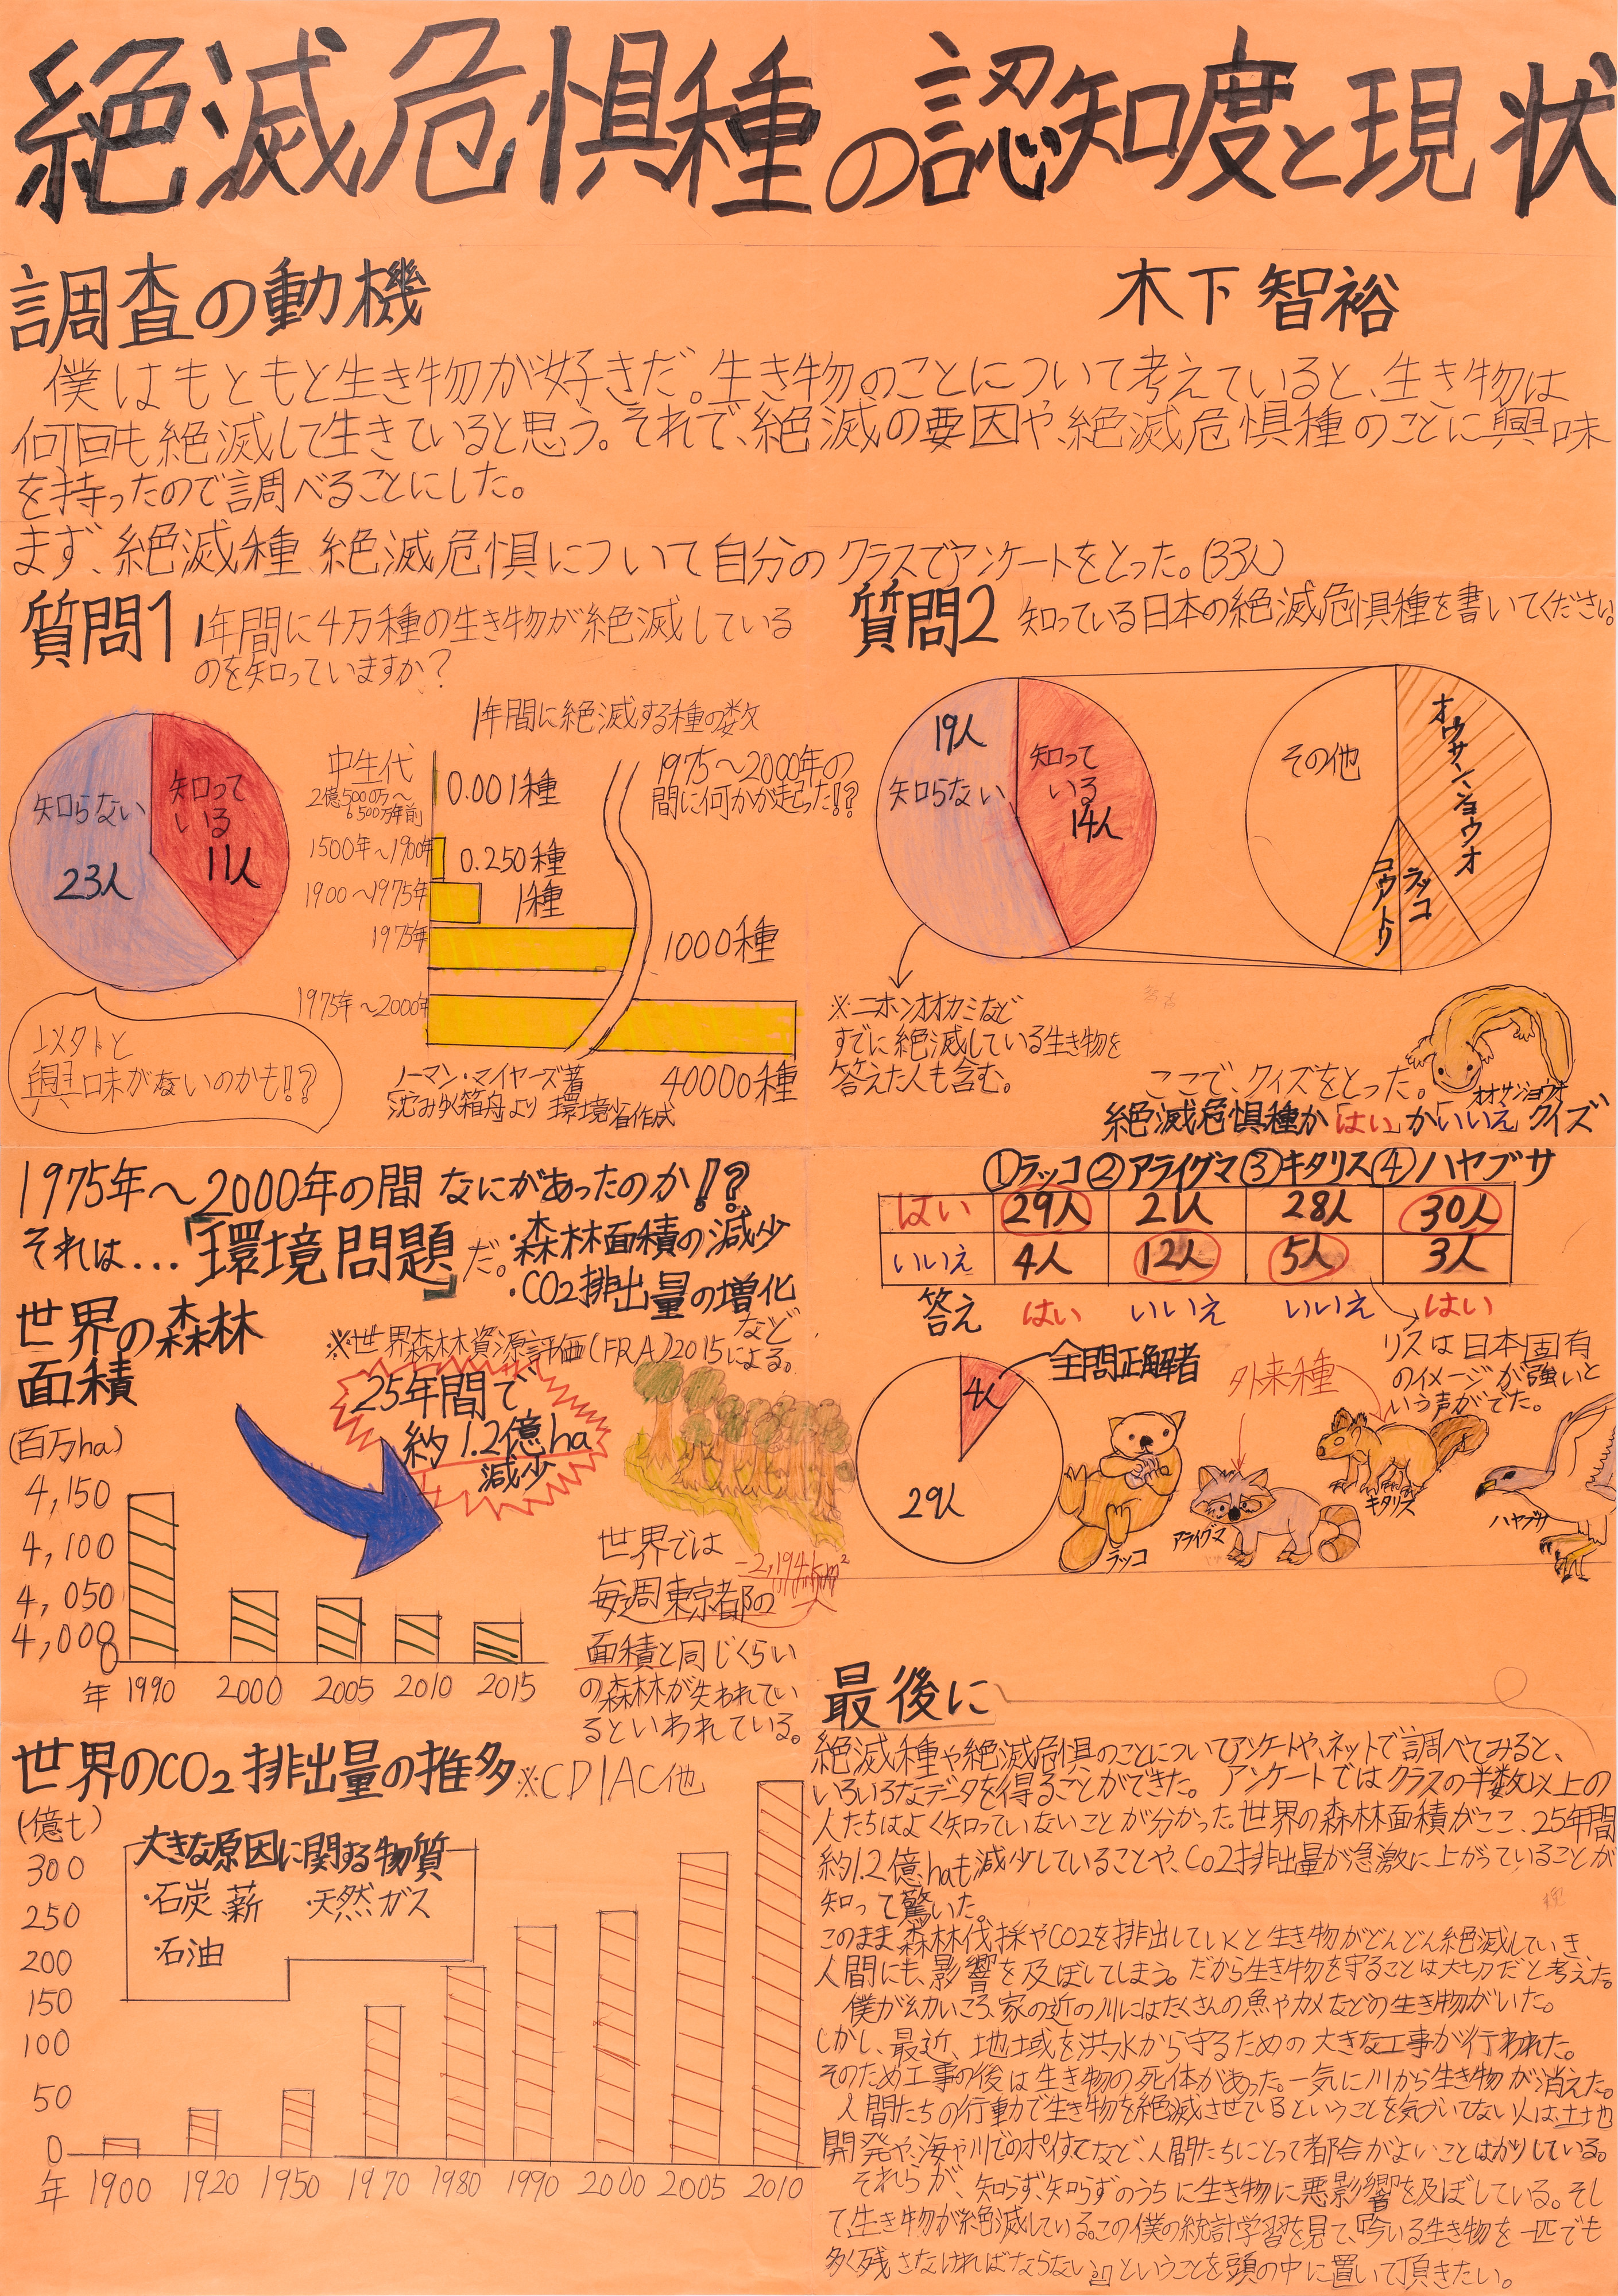 絶滅危惧種の認知度と現状
調査の動機
木下 智裕
僕はもともと生き物が好きだ。生き物のことについて考えていると、生き物は
何回も絶滅して生きていると思う。それで、絶滅の要因や、絶滅危惧種のことに興味
を持ったので調べることにした。
まず、絶滅種、絶滅危惧について自分のクラスでアンケートをとった。(33人)
質問1 1年間に4万種の生き物が絶滅している
のを知っていますか?
知らない
23人
知って
いる
11人
以外と
興味がないのかも!?
1年間に絶滅する種の数
中生代
2億500万〜
6500万年前
0.001種
1500年〜1900年
0.250種
1900〜1975年
1種
1975年
1000種
1975年〜2000年
40000種
1975〜2000年の
間に何かが起った!?
ノーマン・マイヤーズ著
「沈みゆく箱舟」より 環境省作成
質問2 知っている日本の絶滅危惧種を書いてください。
19人
知らない
知って
いる
14人
その他
オウサンショウオ
ラッコ
コウノトリ
※ニホンオオカミなど
すでに絶滅している生き物を
答えた人も含む。
オオサンショウオ
ここで、クイズをとった。
絶滅危惧種か「はい」か「いいえ」クイズ
①ラッコ ②アライグマ ③キタリス ④ハヤブサ
はい 29人 21人 28人 30人
いいえ 4人 12人 5人 3人
答え はい いいえ いいえ はい
4人
全問正解者
29人
外来種
リスは日本固有
のイメージが強いと
いう声がでた。
ラッコ
アライグマ
キタリス
ハヤブサ
1975年〜2000年の間 なにがあったのか!?
それは…「環境問題」だ。
・森林面積の減少
・CO2排出量の増化
など
世界の森林
面積
※世界森林資源評価(FRA)2015による。
25年間で
約1.2億ha
減少
(百万ha)
4,150
4,100
4,050
4,000
0
年 1990 2000 2005 2010 2015
世界では
2,194km²
毎週東京都の
面積と同じくらい
の森林が失われてい
るといわれている。
世界のCO2排出量の推多 ※CDIAC他
(億t)
大きな原因に関する物質
・石炭 薪 ・天然ガス
・石油
300
250
200
150
100
50
0
年 1900 1920 1950 1970 1980 1990 2000 2005 2010
最後に
絶滅種や絶滅危惧のことについてアンケートや、ネットで調べてみると、
いろいろなデータを得ることができた。 アンケートではクラスの半数以上の
人たちはよく知っていないことが分かった。世界の森林面積がここ、25年間
約1.2億haも減少していることや、CO2排出量が急激に上がっていることが
知って驚いた。
このまま森林伐採やCO2を排出していくと生き物がどんどん絶滅していき
人間にも、影響を及ぼしてしまう。だから生き物を守ることは大切だと考えた。
僕が幼いころ、家の近の川にはたくさんの魚やカメなどの生き物がいた。
しかし、最近、地域を洪水から守るための大きな工事が行われた。
そのため工事の後は生き物の死体があった。一気に川から生き物が消えた。
人間たちの行動で生き物を絶滅させているということを気づいてない人は、土地
開発や、海や川でのポイすてなど、人間たちにとって都合がよいことばかりしている。
それらが、知らず、知らずのうちに生き物に悪影響を及ぼしている。そし
て、生き物が絶滅している。この僕の統計学習を見て、「今いる生き物を一匹でも
多く残さなければならない」ということを頭の中に置いて頂きたい。